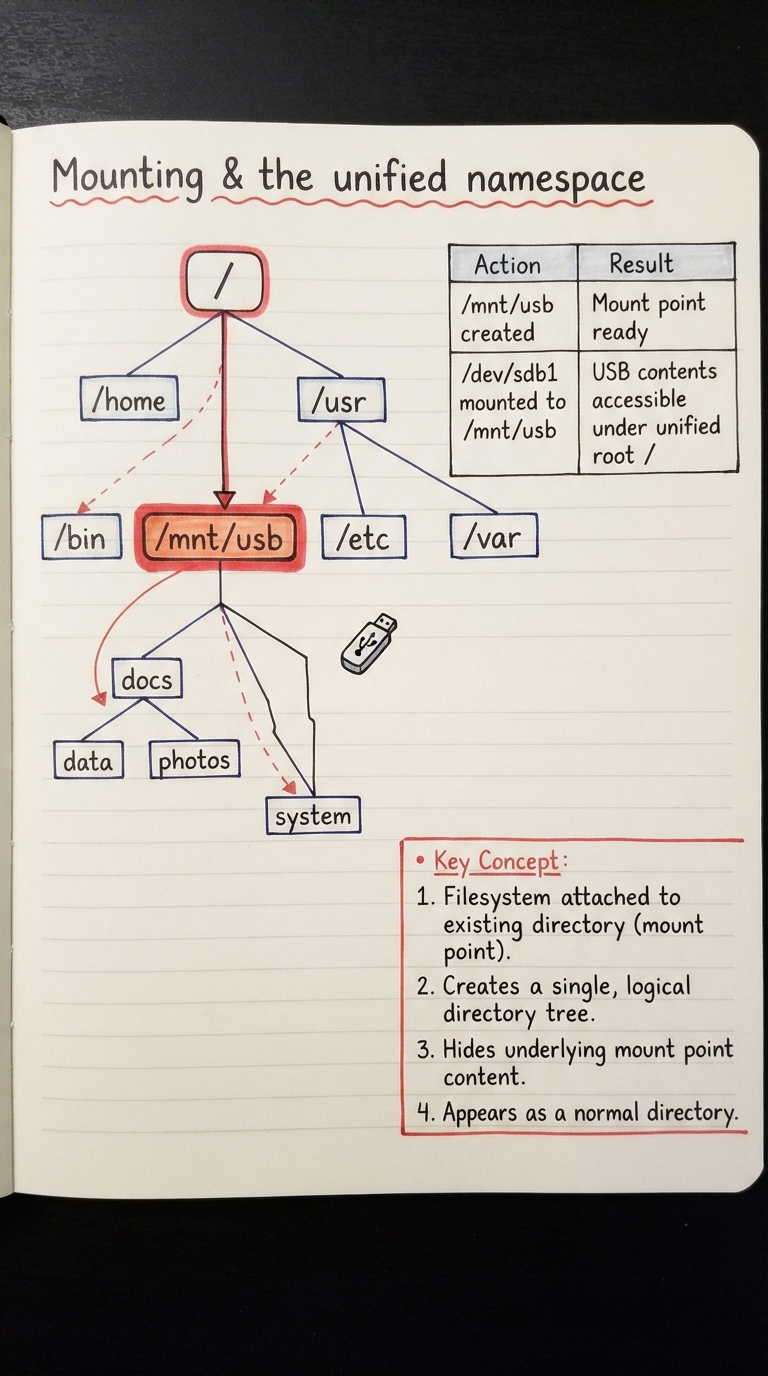 Mounting & the unified namespace
/
/home
/usr
/bin
/mnt/usb
/etc
/var
docs
data
photos
system
Action
Result
/mnt/usb
created
Mount point
ready
/dev/sdb1
mounted to
/mnt/usb
USB contents
accessible
under unified
root /
• Key Concept:
1. Filesystem attached to
existing directory (mount
point).
2. Creates a single, logical
directory tree.
3. Hides underlying mount point
content.
4. Appears as a normal directory.